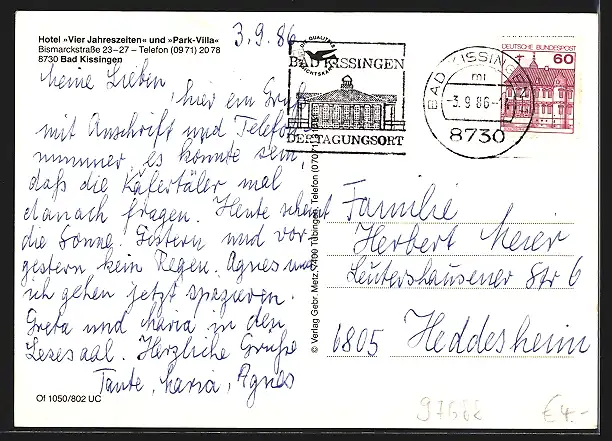 Hotel »Vier Jahreszeiten« und »Park-Villa«
Bismarckstraße 23–27 – Telefon (09 71) 20 78
8730 Bad Kissingen
3.9.86
Meine Lieben,
hier ein Gruß
mit Anschrift und Telefon-
nummer, es könnte sein,
daß die Käfertäler mal
danach fragen. Heute scheint
die Sonne. Gestern und vor-
gestern kein Regen. Agnes und
ich gehen jetzt spazieren.
Greta und Maria in den
Lesesaal. Herzliche Grüße
Tante, Maria, Agnes
Of 1050/802 UC
© Verlag Gebr. Metz, 7400 Tübingen, Telefon
BAD KISSINGEN
DER TAGUNGSORT
BAD KISSINGEN
mi
-3.9.86-
8730
DEUTSCHE BUNDESPOST
60
Familie
Herbert Meier
Leutershausener Str 6
6805 Heddesheim
€ 4.-